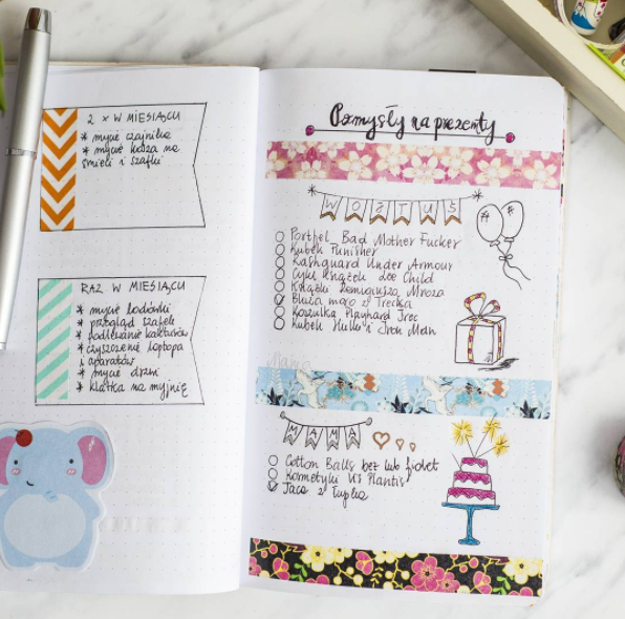 2 x W MIESIĄCU
* mycie czajnika
* mycie kosza na
śmieci i szafki
RAZ W MIESIĄCU
* mycie lodówki
* przegląd szafek
* podlewanie kaktusów
* czyszczenie laptopa
i aparatów
* mycie drzwi
* klatka na myjnię
Pomysły na prezenty
WOJTUŚ
Portfel Bad Mother Fucker
Kubek Punisher
Rashguard Under Armour
Cykl książek Lee Child
Książki Remigiusza Mroza
Bluza moro z
Koszulka Playhard
Kubek Hulk i Iron Man
Mama
MAMA
Cotton Balls bez lub fiolet
Kosmetyki Vis Plantis
Taca z